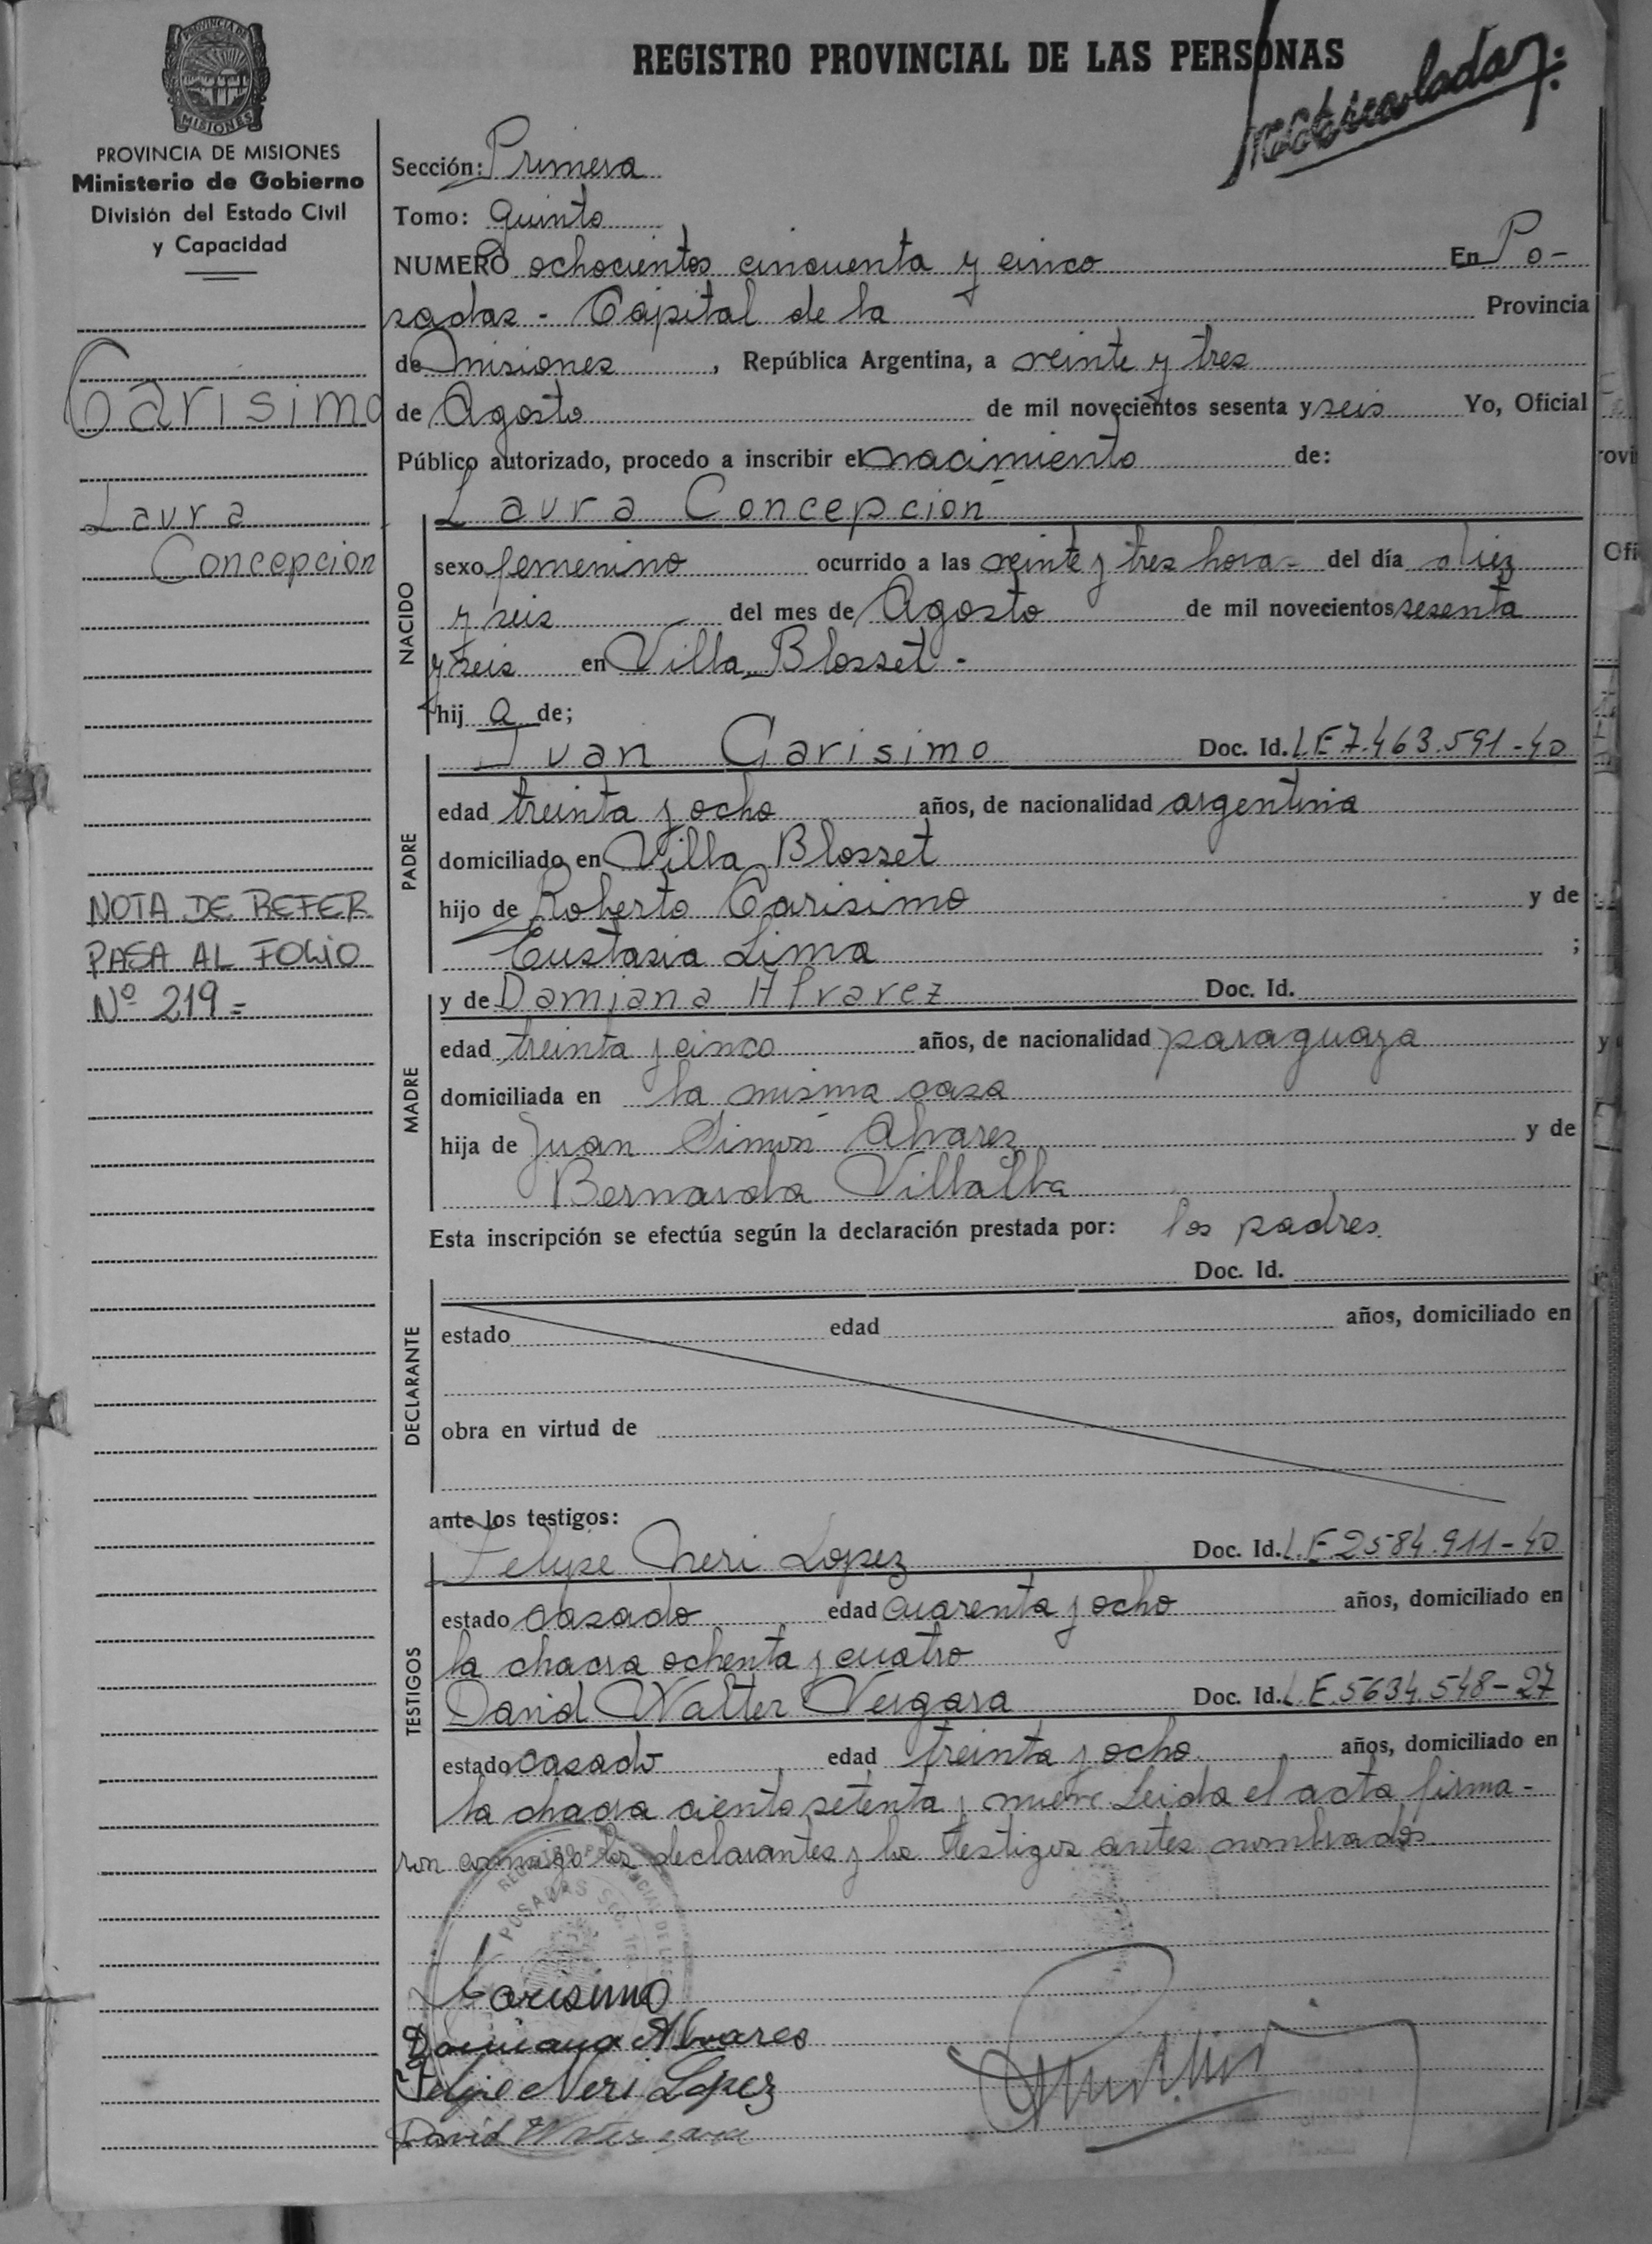 REGISTRO PROVINCIAL DE LAS PERSONAS
Matriculada
PROVINCIA DE MISIONES
Ministerio de Gobierno
División del Estado Civil
y Capacidad
Carisimo
Laura
Concepcion
NOTA DE REFER
PASA AL FOLIO
Nº 219=
Sección: Primera
Tomo: Quinto
NUMERO ochocientos cincuenta y cinco En Po-
sadas - Capital de la Provincia
de Misiones, República Argentina, a veinte y tres
de Agosto de mil novecientos sesenta y seis Yo, Oficial
Público autorizado, procedo a inscribir el nacimiento de:
Laura Concepción
NACIDO
sexo femenino ocurrido a las veinte y tres horas del día diez
y seis del mes de Agosto de mil novecientos sesenta
y seis en Villa Blosset -
hij a de;
PADRE
Juan Carisimo Doc. Id. L.E 7.463.591-40
edad treinta y ocho años, de nacionalidad argentina
domiciliado en Villa Blosset
hijo de Roberto Carisimo y de
Eustasia Lima ;
MADRE
y de Damiana Alvarez Doc. Id.
edad treinta y cinco años, de nacionalidad paraguaya
domiciliada en la misma casa
hija de Juan Simón Alvarez y de
Bernarda Villalba
Esta inscripción se efectúa según la declaración prestada por: los padres.
Doc. Id.
DECLARANTE
estado edad años, domiciliado en
obra en virtud de
ante los testigos:
TESTIGOS
Felipe Neri Lopez Doc. Id. L.E 2584.911-40
estado casado edad cuarenta y ocho años, domiciliado en
la chacra ochenta y cuatro
David Walter Vergara Doc. Id. L.E. 5634.548-27
estado casado edad treinta y ocho años, domiciliado en
la chacra ciento setenta y nueve. Leida el acta firma-
ron conmigo los declarantes y los testigos antes nombrados.
Carisimo
Damiana Alvares
Felipe Neri López
David W Vergara